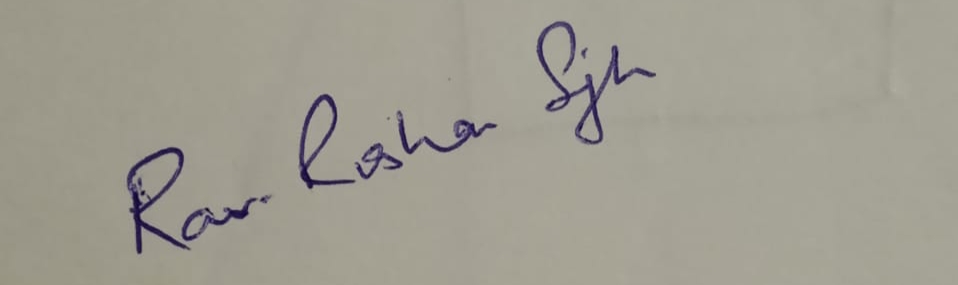 Ravi Roshan Singh